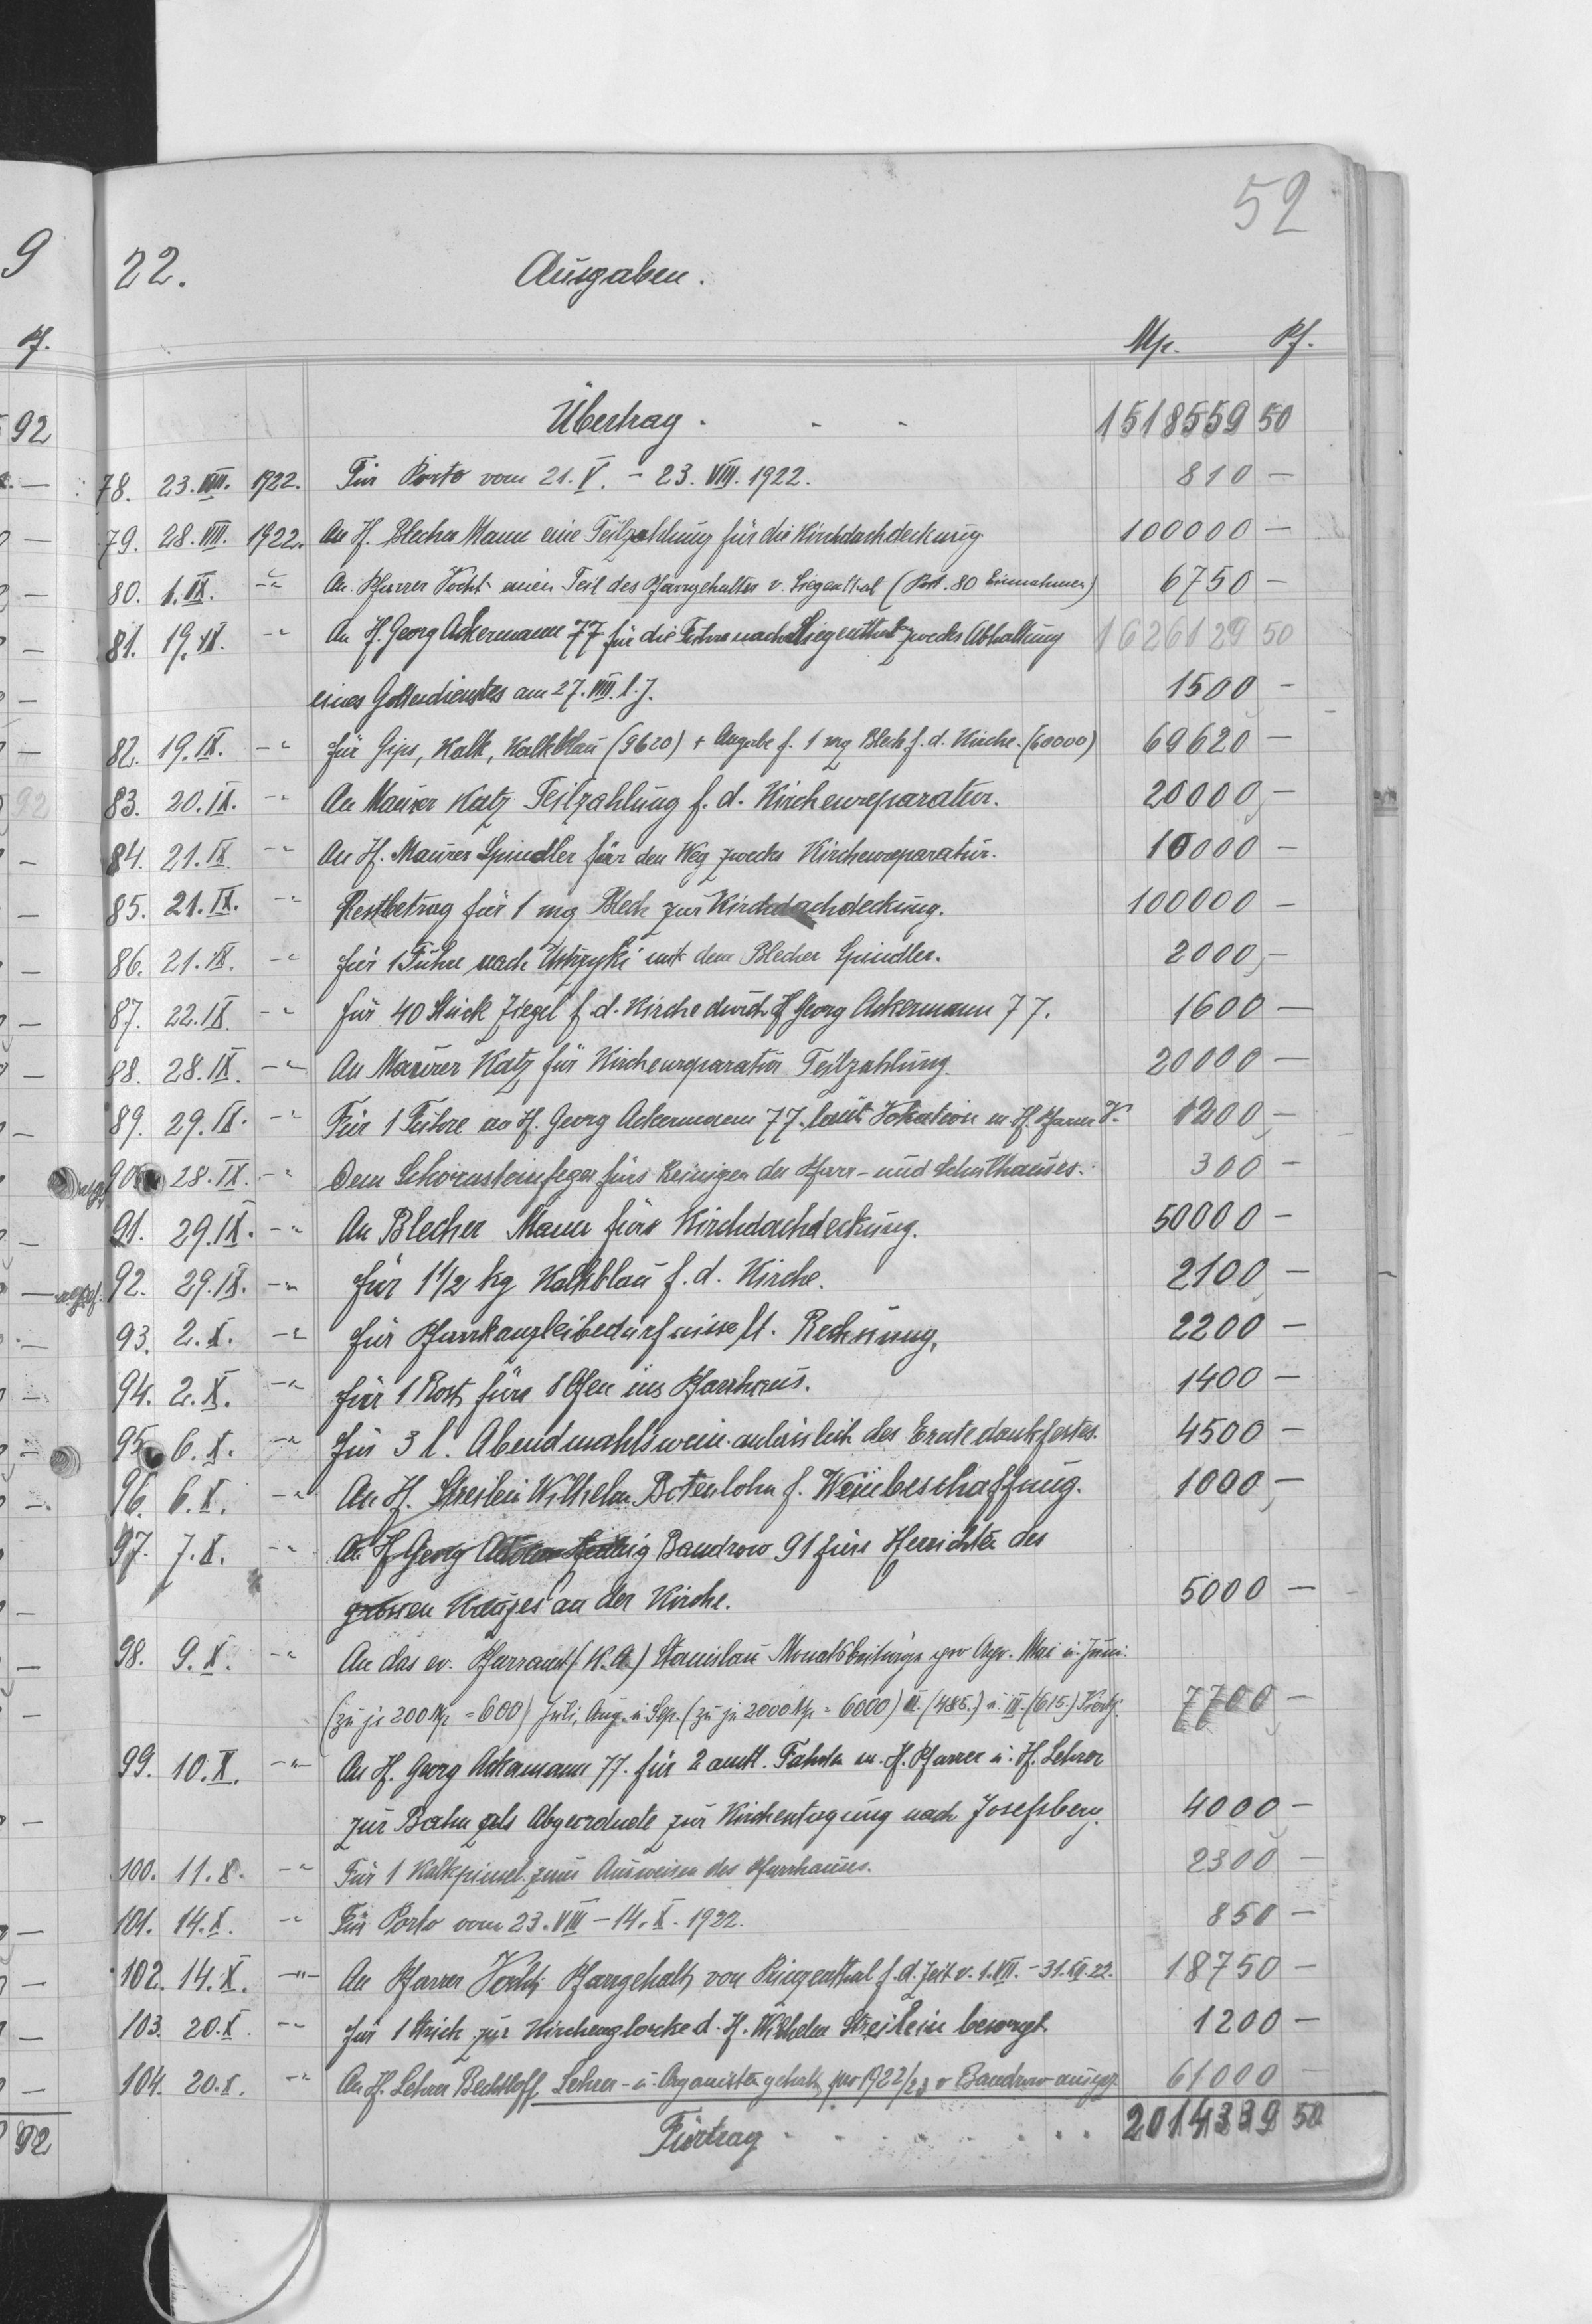 52
9
22.
Ausgaben.
Pf.
Mp. Pf.
92
Übertrag . - - 1518559 50
78. 23. VIII. 1922. Für Porto vom 21. V. - 23. VIII. 1922. 810 —
79. 28. VIII. 1922. An H. Blecher Mann eine Teilzahlung für die Kirchdachdeckung 100000 —
80. 1. IX. -"- An Pfarrer Vocht einen Teil des Pfarrgehaltes v. Siegenthal (Post. 80 Einnahmen) 6750 —
81. 19. IX. -"- An H. Georg Ackermann 77 für die Fuhre nach Siegenthal zwecks Abhaltung 1626129 50
eines Gottesdienstes am 27. VIII. l. J. 1500 —
82. 19. IX. -"- für Gips, Kalk, Kalkblau (9620) + Angabe f. 1 mg Blech f. d. Kirche. (60000) 69620 —
92
83. 20. IX. -"- An Maurer Katz Teilzahlung f. d. Kirchenreparatur. 20000, —
84. 21. IX -"- An H. Maurer Spindler für den Weg zwecks Kirchenreparatur. 10000 —
85. 21. IX. -"- Restbetrag für 1 mg Blech zur Kirchdachdeckung. 100000 —
86. 21. IX. -"- für 1 Fuhre nach Ustrzyki mit dem Blecher Spindler. 2000, —
87. 22. IX. -"- für 40 Stück Ziegel f. d. Kirche durch H Georg Ackermann 77. 1600 —
88. 28. IX. -"- An Maurer Katz für Kirchenreparatur Teilzahlung. 20000 —
89. 29. IX. -"- Für 1 Fuhre an H. Georg Ackermann 77. laut Vokation m H. Pfarrer V. 1200, —
90. 28. IX. -"- Dem Schornsteinfeger fürs Reinigen des Pfarr- und Schulhauses. 300 —
91. 29. IX. -"- An Blecher Mann fürs Kirchdachdeckung. 50000 —
92. 29. IX. -"- für 1 1/2 kg Kalkblau f. d. Kirche. 2100, —
93. 2. X. -"- für Pfarrkanzleibedürfnisse lt. Rechnung. 2200 —
94. 2. X. -"- für 1 Rost fürs Ofen ins Pfarrhaus. 1400 —
95. 6. X. -"- für 3 l. Abendmahlswein anläslich des Erntedankfestes. 4500 —
96. 6. X. -"- An H. Streilein Wilhelm Botenlohn f. Weinbeschaffung. 1000, —
97. 7. X. -"- An H Georg Bandrow 91 fürs Herrichten des
grossen Kreuzes an der Kirche. 5000 —
98. 9. X. -"- An das ev. Pfarramt (K. A.) Stanislau Monatsbeiträge pro Apr. Mai u. Juni.
(zu je 200 Mp = 600) Juli, Aug. u. Sep. (zu je 2000 Mp = 6000) II. (485.) u. III. (615.) 7700 —
99. 10. X. -"- An H. Georg Ackermann 77. für 2 amtl. Fahrten m. H. Pfarrer u. H. Lehrer
zur Bahn als Abgeordnete zur Kirchentagung nach Josefsberg. 4000 —
100. 11. X. -"- Für 1 Kalkpinsel zum Ausweisen des Pfarrhauses. 2300 —
101. 14. X. -"- Für Porto vom 23. VIII - 14. X. 1922. 850 —
102. 14. X. -"- An Pfarrer Vocht Pfarrgehalt von f. d. Zeit v. 1. VII. - 31. XII. 22. 18750 —
103. 20. X. -"- für 1 Strick zur Kirchenglocke d. H. Wilhelm Streilein besorgt. 1200 —
104. 20. X. -"- An H. Lehrer Bechtloff Lehrer- u. Organistengehalt pro 1922/23 v Bandrow 61000 —
92
Fürtrag - - - - - - - - 2014339 50